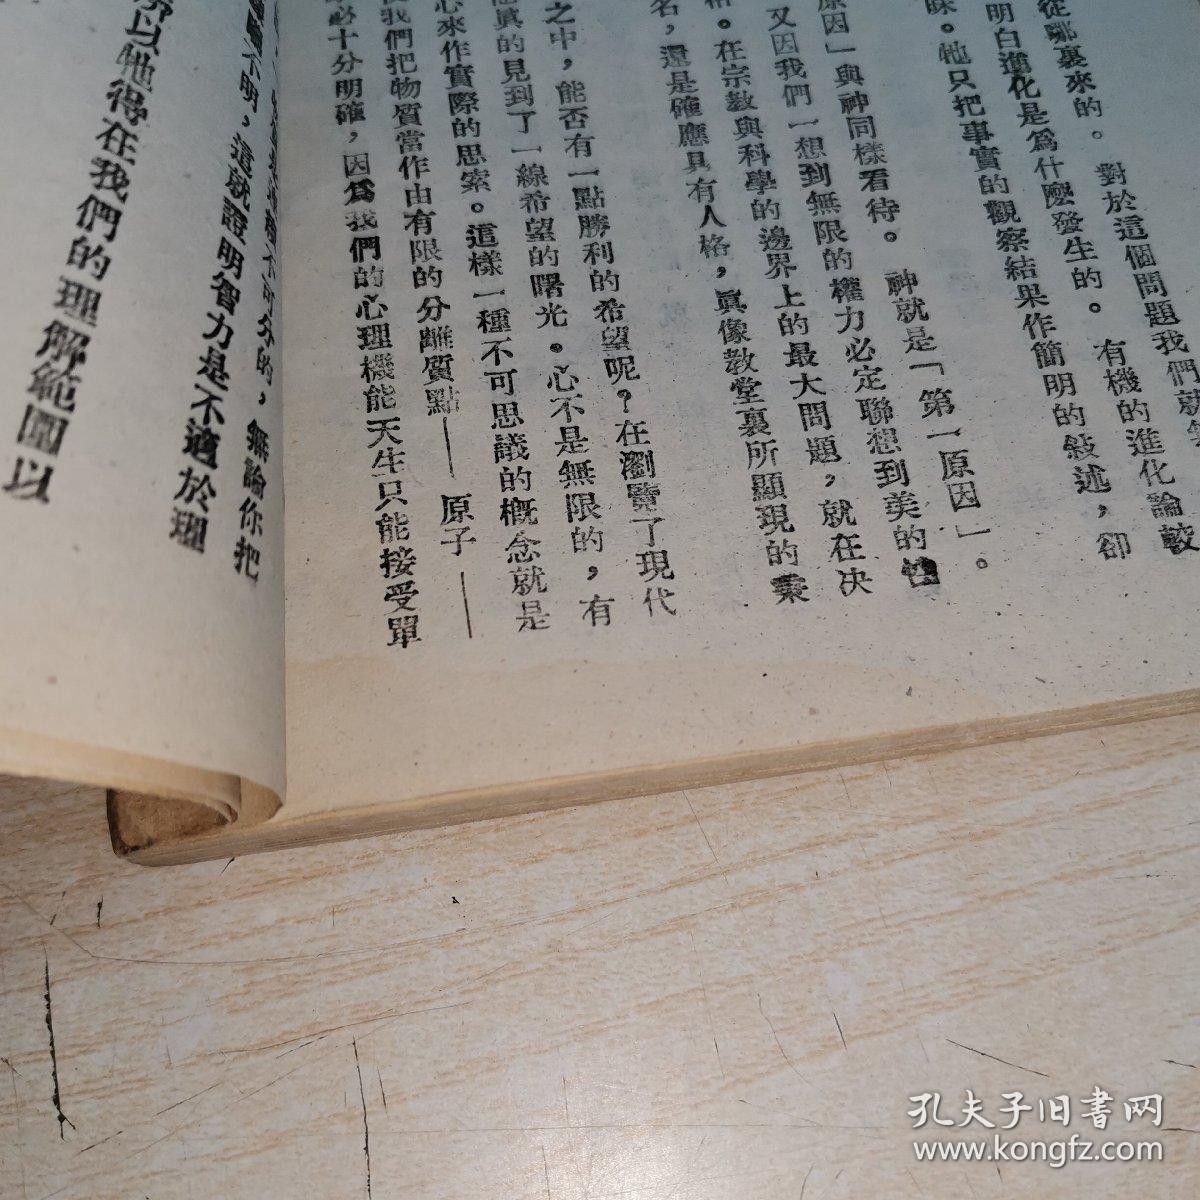 從哪裏來的。對於這個問題我們就
明白進化是爲什麼發生的。有機的進化論較
味。牠只把事實的觀察結果作簡明的敍述，卻
原因」與神同樣看待。神就是「第一原因」。
又因我們一想到無限的權力必定聯想到美的性
格。在宗教與科學的邊界上的最大問題，就在決
名，還是確應具有人格，眞像教堂裏所顯現的
之中，能否有一點勝利的希望呢？在瀏覽了現代
眞的見到了一線希望的曙光。心不是無限的，有
心來作實際的思索。這樣一種不可思議的概念就是
我們把物質當作由有限的分離質點——原子——
必十分明確，因爲我們的心理機能天生只能接受單
不可分的，無論你把
不明，這就證明智力是不適於理
所以牠得在我們的理解範圍以
孔夫子旧书网
www.kongfz.com